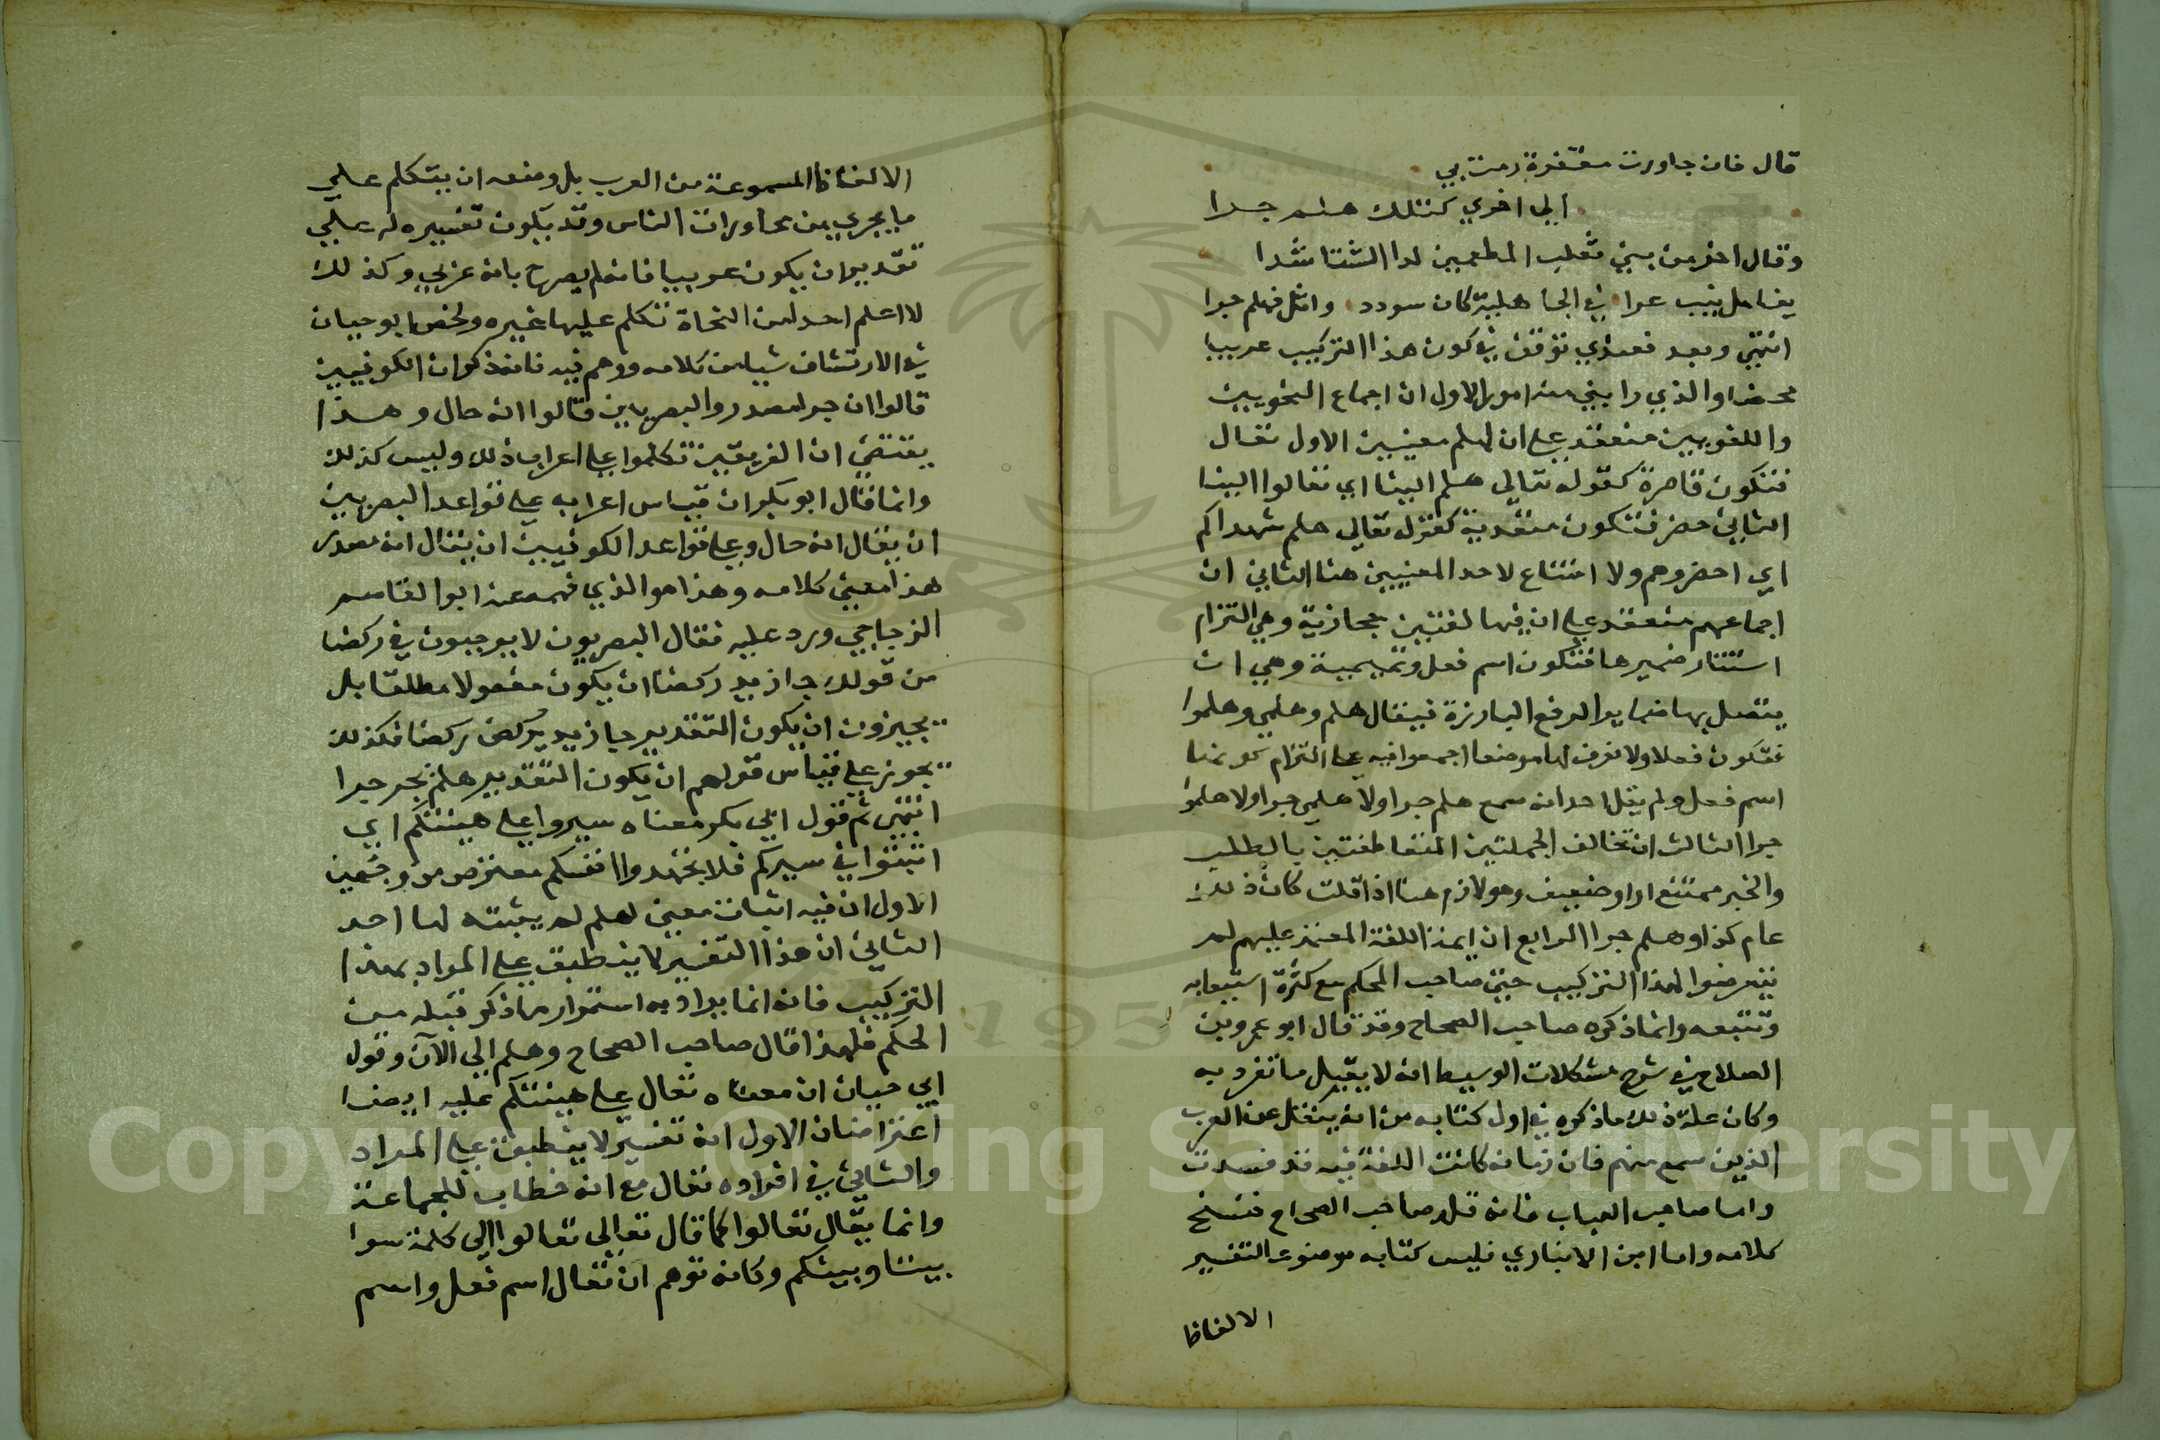 قال فان جاورت مقفرة رمت بي
الي اخري كتلك هلم جرا
وقال اخر من بني تغلب المطعمين لدا الشتا شدا
في الجاهلية كان سودد وائل فهلم جرا
انتهي وبعد فعندي توقف في كون هذا التركيب عربيا
محضا والذي رابني منه امور الاول ان اجماع النحويين
واللغويين منعقد علي ان لهلم معنيين الاول تعال
فتكون قاصرة كقوله تعالي هلم الينا اي تعالوا الينا
الثاني احضر فتكون متعدية كقوله تعالي هلم شهداكم
اي احضروهم ولا امتناع لاحد المعنيين هنا الثاني ان
اجماعهم منعقد علي ان فيها لغتين حجازية وهي التزام
استتار ضميرها فتكون اسم فعل وتميمية وهي ان
يتصل بها ضماير الرفع البارزة فيقال هلم وهلمي وهلموا
فتكون فعلا ولا نعرف لها موضعا اجمعوا فيه علي التزام كونها
اسم فعل ولم يقل احد انه سمع هلم جرا ولا هلمي جرا ولا هلموا
جرا الثالث ان تخالف الجملتين المتعاطفتين بالطلب
والخبر ممتنع او ضعيف وهو لازم هنا اذا قلت كان ذلك
عام كذا وهلم جرا الرابع ان ايمة اللغة المعتمد عليهم لم
يتعرضوا لهذا التركيب حتي صاحب المحكم مع كثرة استيعابه
وتتبعه وانما ذكره صاحب الصحاح وقد قال ابو عمرو بن
الصلاح في شرح مشكلات الوسيط انه لا يقبل ما تفرد به
وكان علة ذلك ما ذكره في اول كتابه من انه ينقل عن العرب
الذين سمع منهم فان زمانه كانت اللغة فيه قد فسدت
واما صاحب العباب فانه قلد صاحب الصحاح فنسخ
كلامه واما ابن الانباري فليس كتابه موضوعا لتفسير
الالفاظ
الالفاظ المسموعة من العرب بل وضعه ان يتكلم علي
ما يجري من محاورات الناس وقد يكون تفسيره له علي
تقدير ان يكون عربيا فانه لم يصرح بانه عربي وكذلك
لا اعلم احدا من النحاة تكلم عليها غيره ولخص ابو حيان
في الارتشاف شيا من كلامه ووهم فيه فانه ذكر ان الكوفيين
قالوا ان جرا مصدر والبصريين قالوا انه حال وهذا
يقتضي ان الفريقين تكلموا علي اعراب ذلك وليس كذلك
وانما قال ابو بكر ان قياس اعرابه علي قواعد البصريين
ان يقال انه حال وعلي قواعد الكوفيين ان يقال انه مصدر
هذا معني كلامه وهذا هو الذي فهمه عنه ابو القاسم
الزجاجي ورد عليه فقال البصريون لا يوجبون في ركضا
من قولك جا زيد ركضا ان يكون مفعولا مطلقا بل
يجيزون ان يكون التقدير جا زيد يركض ركضا فكذلك
يجوز علي قياس قولهم ان يكون التقدير هلم تجر جرا
انتهي ثم قول ابي بكر معناه سيروا علي هينتكم اي
اثبتوا في سيركم فلا تجهدوا انفسكم معترض من وجهين
الاول ان فيه اثبات معني لهلم لم يثبته لها احد
الثاني ان هذا التفسير لا ينطبق علي المراد بهذا
التركيب فانه انما يراد به استمرار ما ذكر قبله من
الحكم فلهذا قال صاحب الصحاح وهلم الي الآن وقول
ابي حيان ان معناه تعال علي هينتكم عليه ايضا
اعتراضان الاول انه تفسير لا ينطبق علي المراد
والثاني في افراده تعال مع انه خطاب للجماعة
وانما يقال تعالوا كما قال تعالي تعالوا الي كلمة سوا
بيننا وبينكم وكانه توهم ان تعال اسم فعل واسم
Copyright © King Saud University
1957